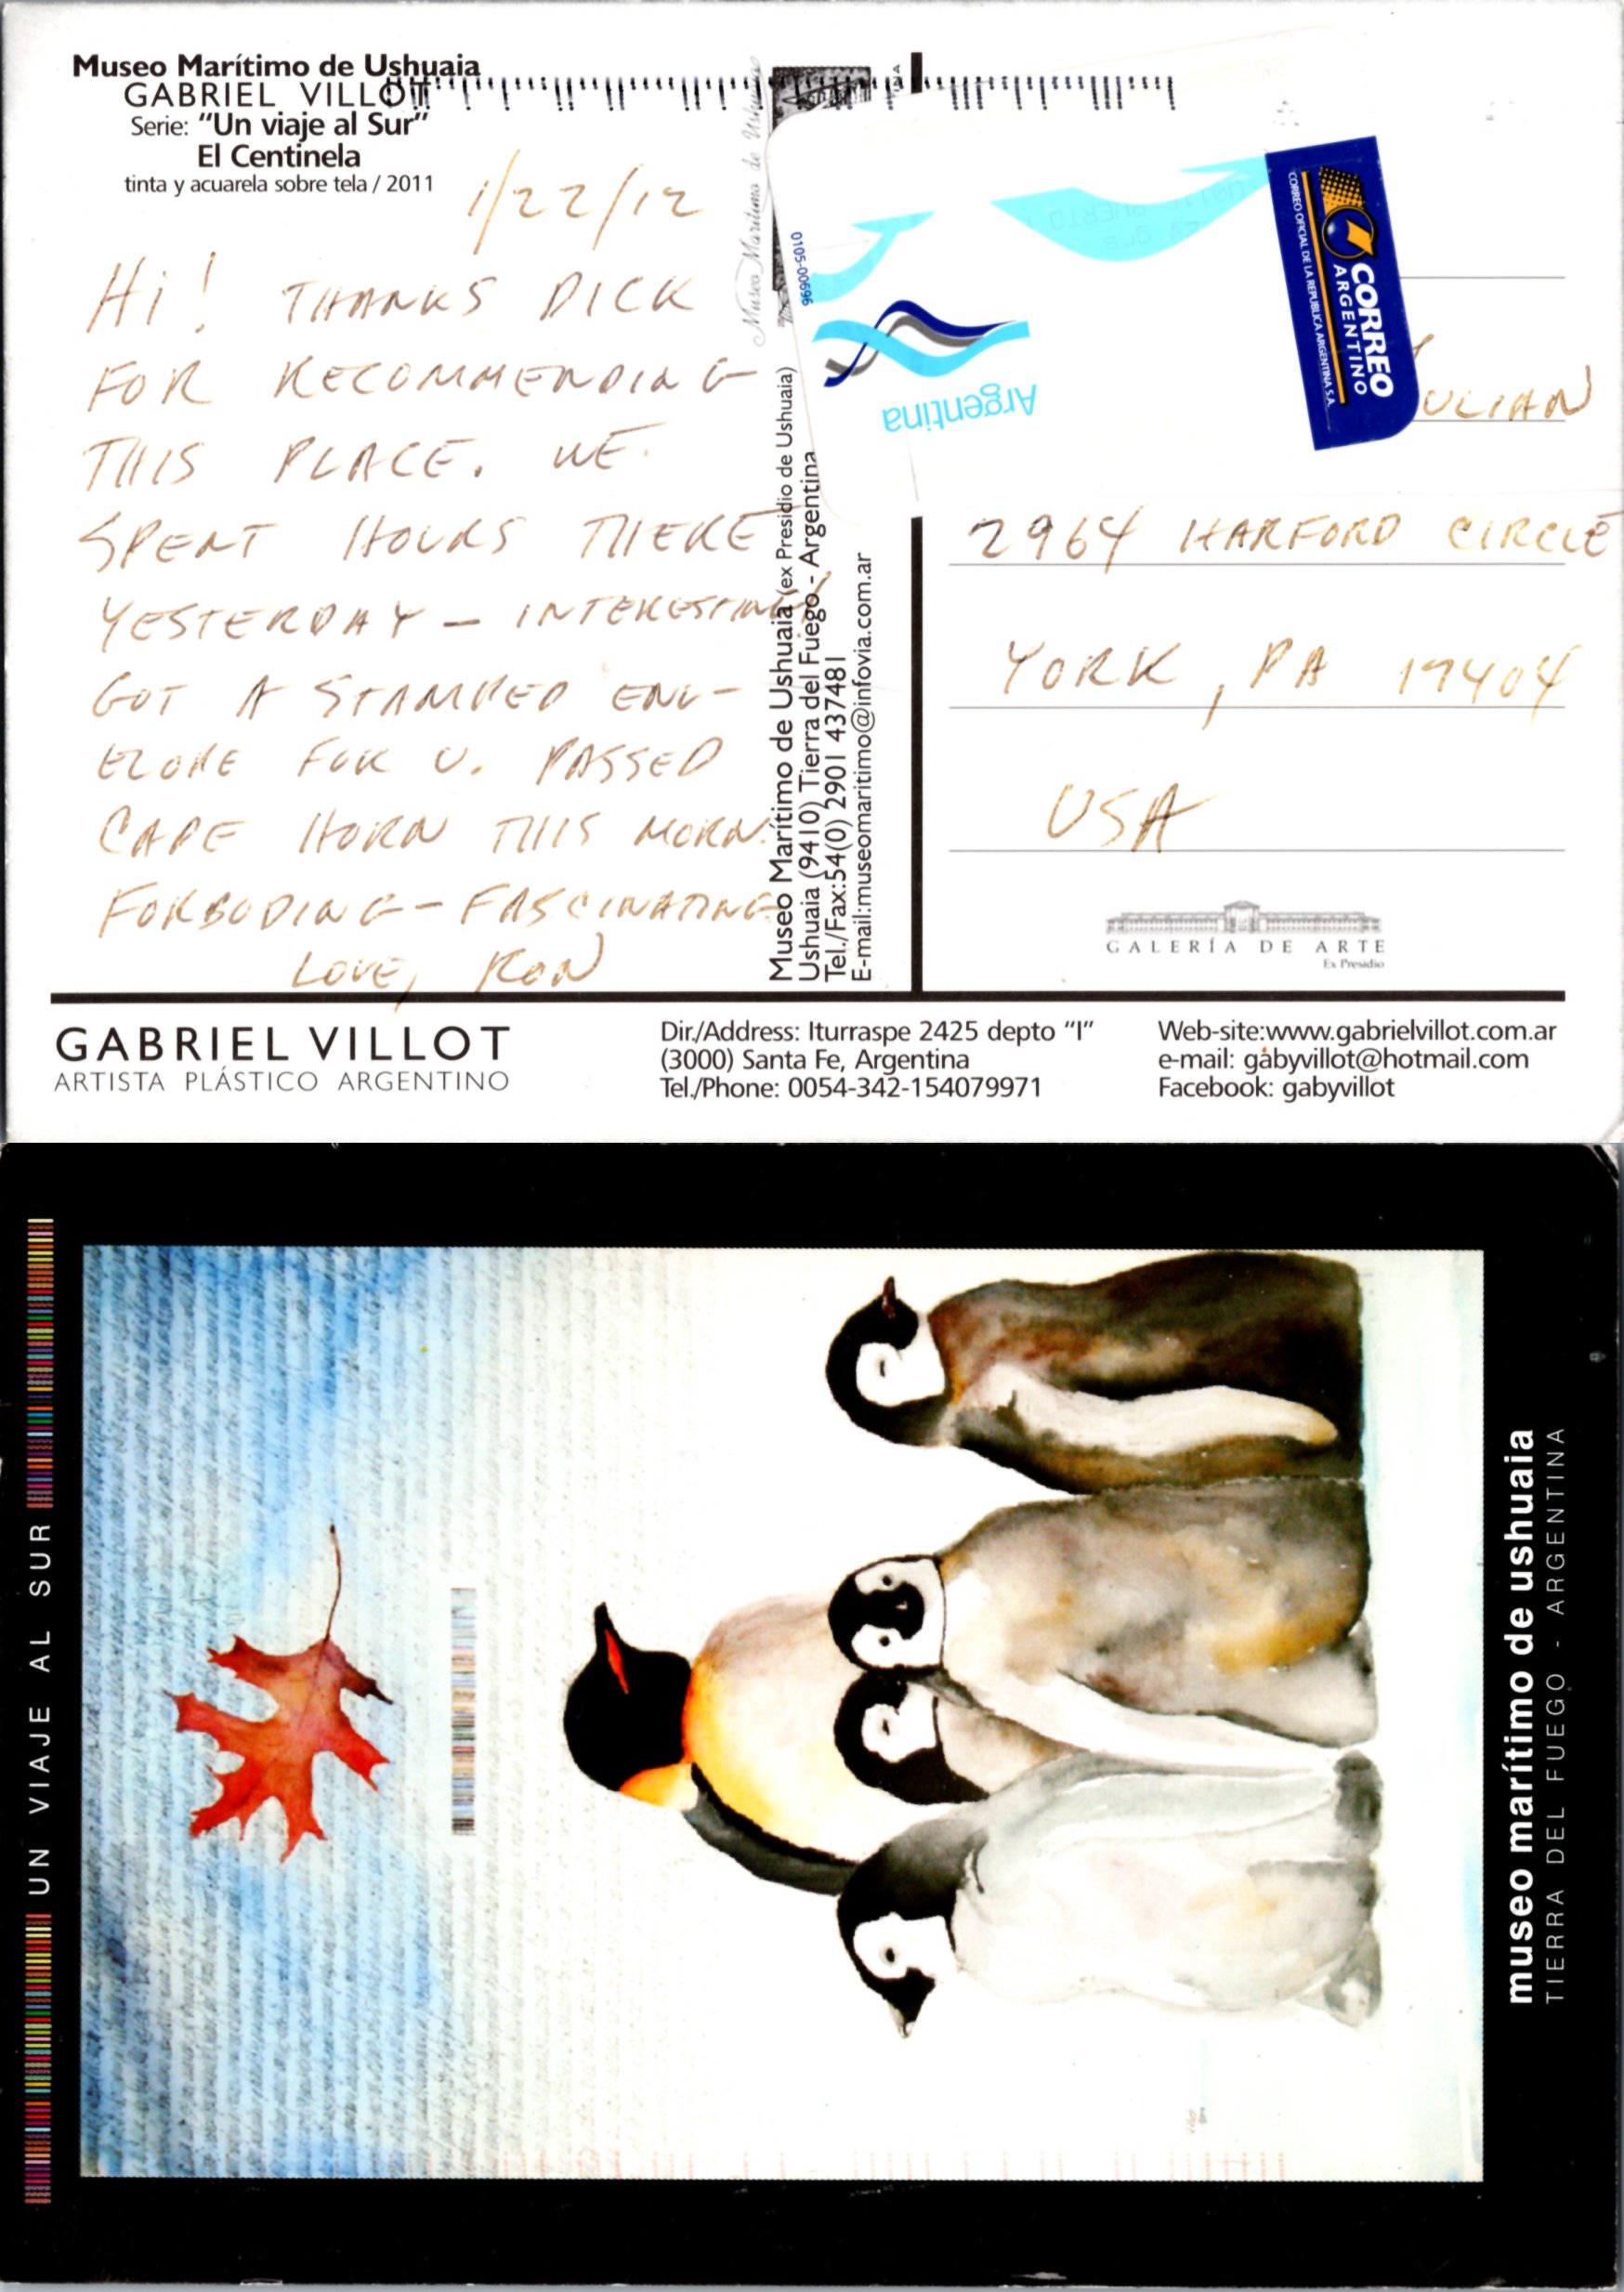 Museo Marítimo de Ushuaia
GABRIEL VILLOT
Serie: “Un viaje al Sur”
El Centinela
tinta y acuarela sobre tela / 2011
1/22/12
Hi! THANKS DICK
FOR RECOMMENDING
THIS PLACE. WE
SPENT HOURS THERE
YESTERDAY – INTERESTING
GOT A STAMPED ENV-
ELOPE FOR U. PASSED
CAPE HORN THIS MORN.
FORBODING – FASCINATING
LOVE, RON
Museo Marítimo de Ushuaia
Museo Marítimo de Ushuaia (ex Presidio de Ushuaia)
Ushuaia (9410) Tierra del Fuego - Argentina
Tel./Fax:54(0) 2901 437481
E-mail:museomaritimo@infovia.com.ar
0105-00696
Argentina
CORREO
ARGENTINO
CORREO OFICIAL DE LA REPUBLICA ARGENTINA S.A.
ULIAN
2964 HARFORD CIRCLE
YORK, PA 17404
USA
GALERÍA DE ARTE
Ex Presidio
GABRIEL VILLOT
ARTISTA PLÁSTICO ARGENTINO
Dir./Address: Iturraspe 2425 depto “I”
(3000) Santa Fe, Argentina
Tel./Phone: 0054-342-154079971
Web-site:www.gabrielvillot.com.ar
e-mail: gabyvillot@hotmail.com
Facebook: gabyvillot
UN VIAJE AL SUR
museo marítimo de ushuaia
TIERRA DEL FUEGO - ARGENTINA